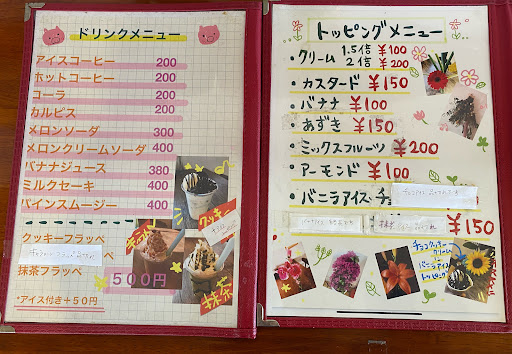 ドリンクメニュー
アイスコーヒー 200
ホットコーヒー 200
コーラ 200
カルピス 200
メロンソーダ 300
メロンクリームソーダ 400
バナナジュース 380
ミルクセーキ 400
パインスムージー 400
クッキーフラッペ
抹茶フラッペ
500円
*アイス付き+50円
クッキー
抹茶
トッピングメニュー
・クリーム 1.5倍 ¥100
2倍 ¥200
・カスタード ¥150
・バナナ ¥100
・あずき ¥150
・ミックスフルーツ ¥200
・アーモンド ¥100
・バニラアイス・チョ
抹茶 ¥150
チョコクッキー
クリーム
バニラアイス
トッピング